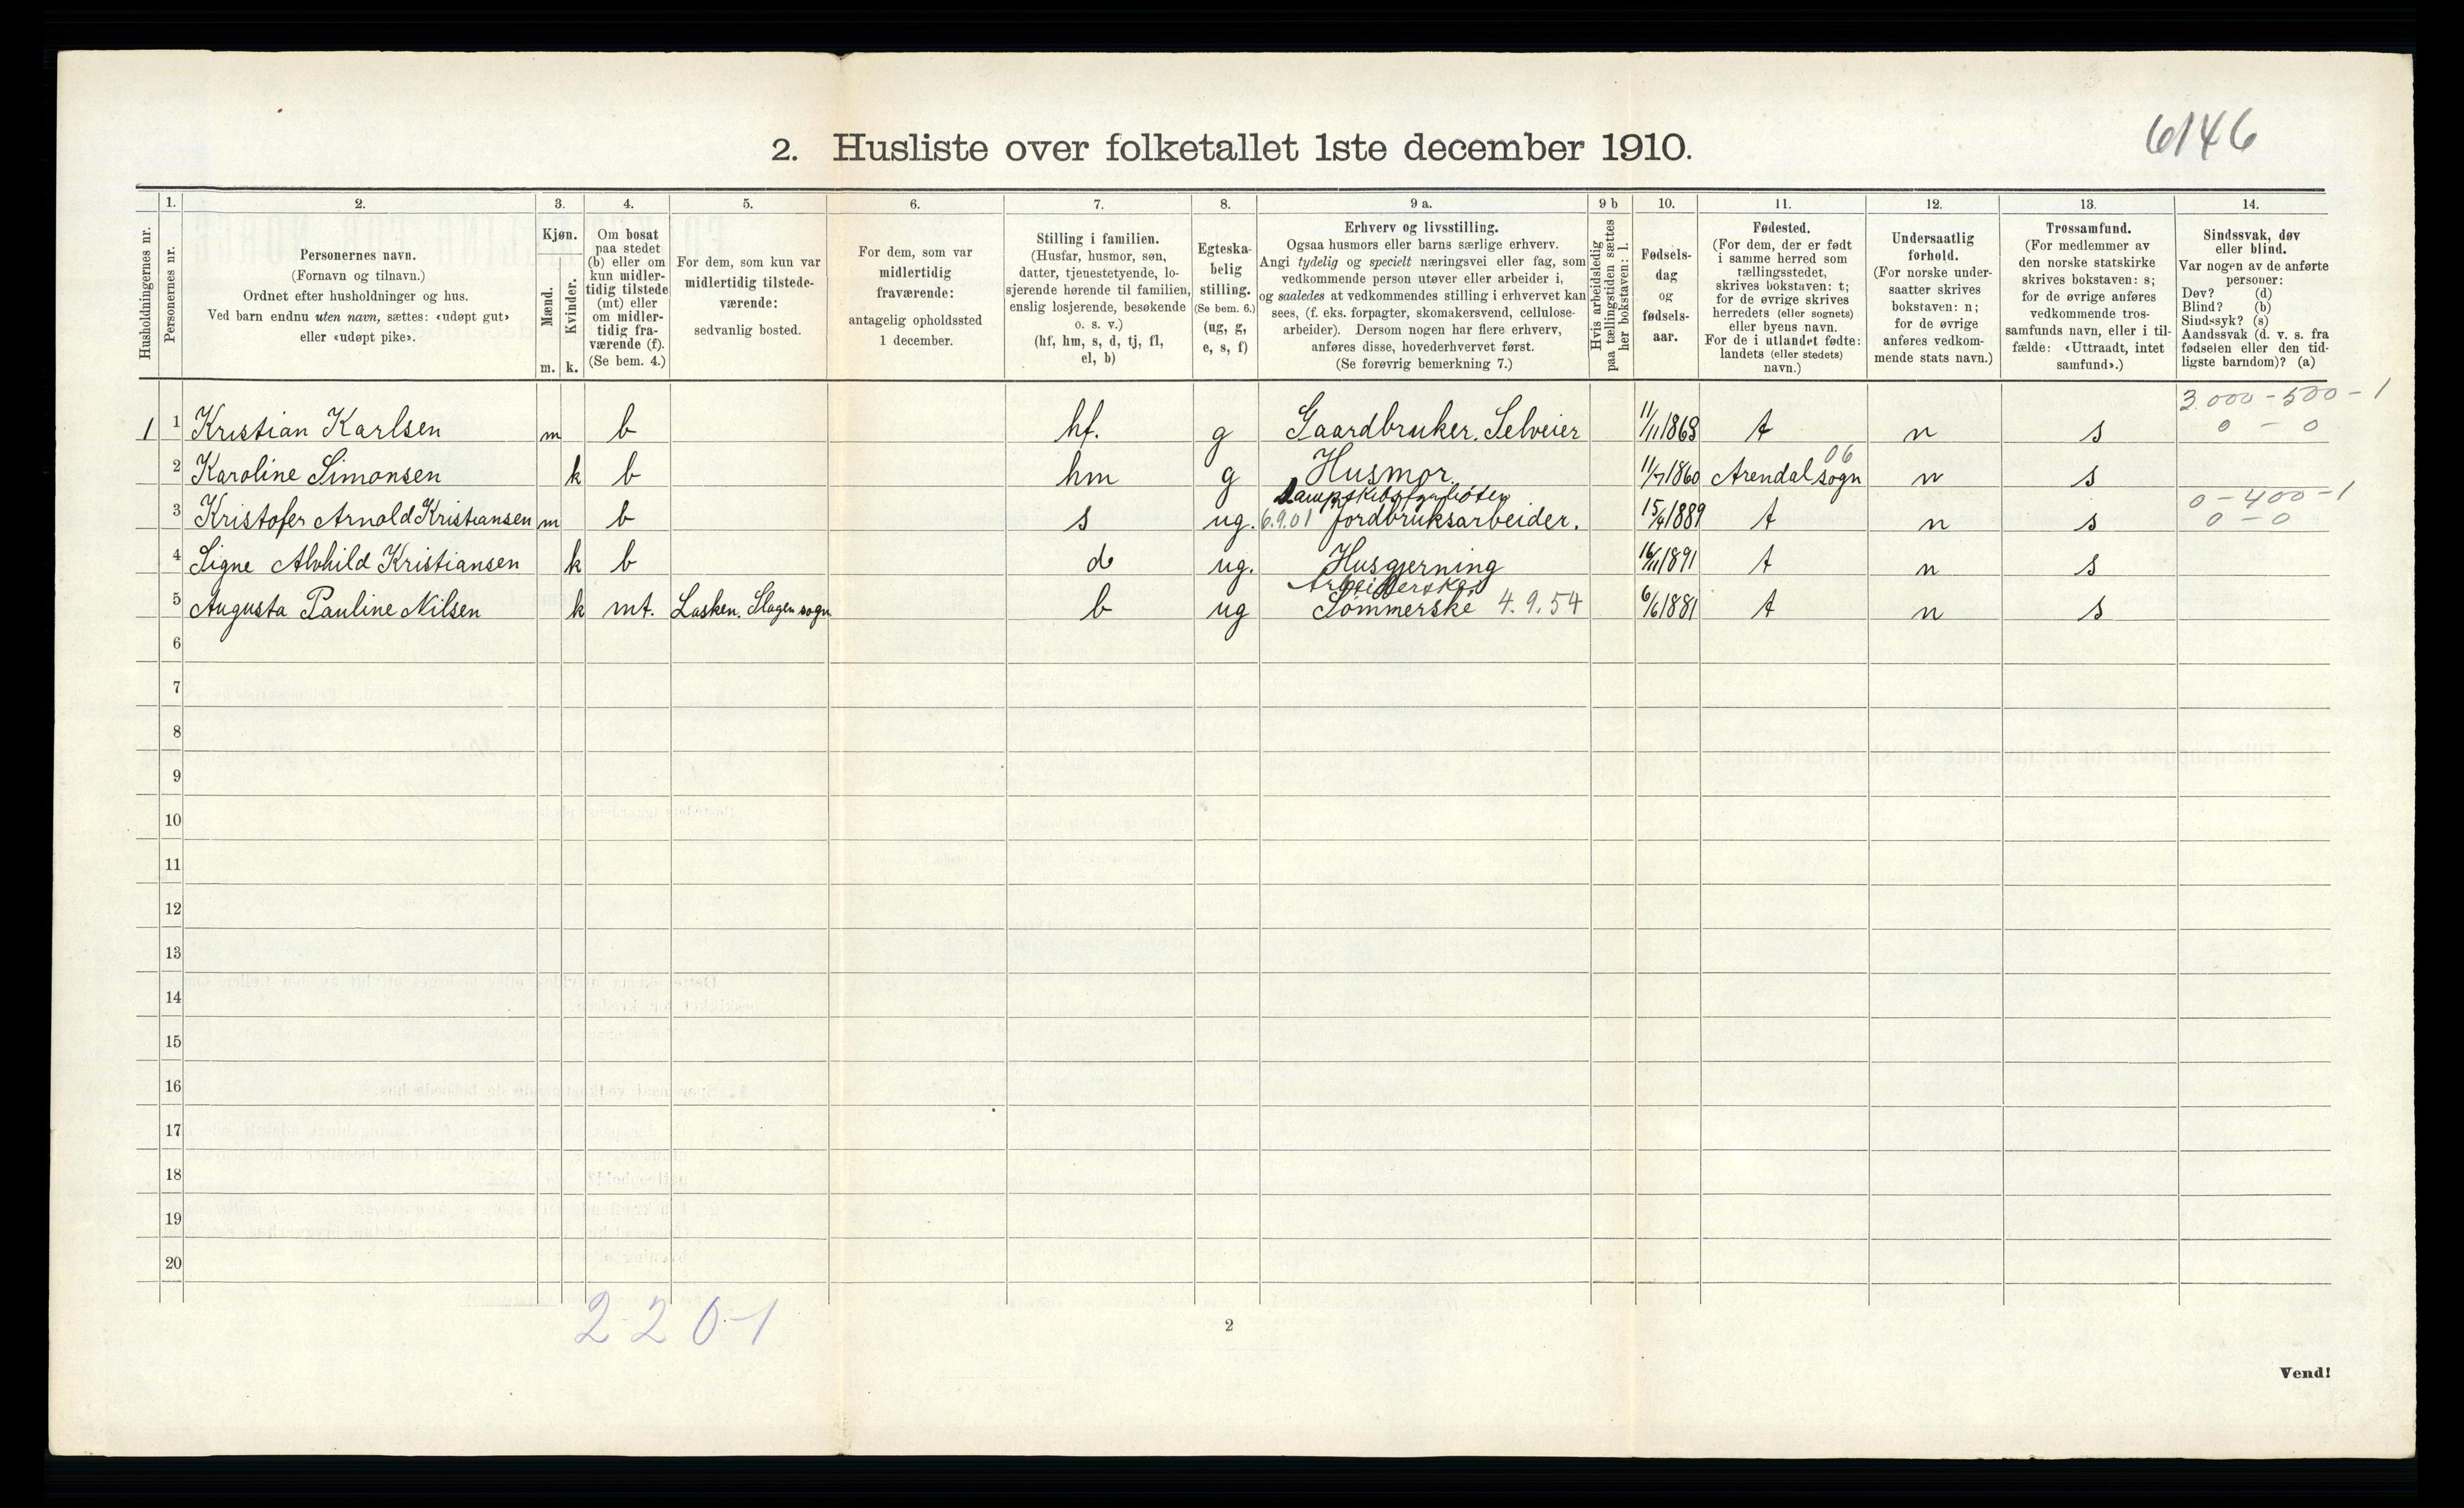 6146
2. Husliste over folketallet 1ste december 1910.
Husholdningernes nr.
1.
Personernes nr.
2.
Personernes navn.
(Fornavn og tilnavn.)
Ordnet efter husholdninger og hus.
Ved barn endnu uten navn, sættes: «udøpt gut»
eller «udøpt pike».
3.
Kjøn.
Mænd.
Kvinder.
m. k.
4.
Om bosat
paa stedet
(b) eller om
kun midler-
tidig tilstede
(mt) eller
om midler-
tidig fra-
værende (f).
(Se bem. 4.)
5.
For dem, som kun var
midlertidig tilstede-
værende:
sedvanlig bosted.
6.
For dem, som var
midlertidig
fraværende:
antagelig opholdssted
1 december.
7.
Stilling i familien.
(Husfar, husmor, søn,
datter, tjenestetyende, lo-
sjerende hørende til familien,
enslig losjerende, besøkende
o. s. v.)
(hf, hm, s, d, tj, fl,
el, b)
8.
Egteska-
belig
stilling.
(Se bem. 6.)
(ug, g,
e, s, f)
9 a.
Erhverv og livsstilling.
Ogsaa husmors eller barns særlige erhverv.
Angi tydelig og specielt næringsvei eller fag, som
vedkommende person utøver eller arbeider i,
og saaledes at vedkommendes stilling i erhvervet kan
sees, (f. eks. forpagter, skomakersvend, cellulose-
arbeider). Dersom nogen har flere erhverv,
anføres disse, hovederhvervet først.
(Se forøvrig bemerkning 7.)
9 b
Hvis arbeidsledig
paa tællingstiden sættes
her bokstaven: l.
10.
Fødsels-
dag
og
fødsels-
aar.
11.
Fødested.
(For dem, der er født
i samme herred som
tællingsstedet,
skrives bokstaven: t;
for de øvrige skrives
herredets (eller sognets)
eller byens navn.
For de i utlandet fødte:
landets (eller stedets)
navn.)
12.
Undersaatlig
forhold.
(For norske under-
saatter skrives
bokstaven: n;
for de øvrige
anføres vedkom-
mende stats navn.)
13.
Trossamfund.
(For medlemmer av
den norske statskirke
skrives bokstaven: s;
for de øvrige anføres
vedkommende tros-
samfunds navn, eller i til-
fælde: «Uttraadt, intet
samfund».)
14.
Sindssvak, døv
eller blind.
Var nogen av de anførte
personer:
Døv? (d)
Blind? (b)
Sindssyk? (s)
Aandssvak (d. v. s. fra
fødselen eller den tid-
ligste barndom)? (a)
3.000 - 500 - 1
1 1 Kristian Karlsen m b hf. g Gaardbruker. Selveier 11/11 1863 t n s 0 - 0
06
2 Karoline Simonsen k b hm g Husmor. 11/7 1860 Arendal sogn n s
Dampskibsfyrbøter 0 - 400 - 1
3 Kristofer Arnold Kristiansen m b s ug. 6.9.01 Jordbruksarbeider. 15/4 1889 t n s 0 - 0
4 Signe Alvhild Kristiansen k b d ug. Husgjerning 16/11 1891 t n s
Arbeiderske
5 Augusta Pauline Nilsen k mt. Lasken. Slagen sogn b ug Sømmerske 4.9.54 6/6 1881 t n s
6
7
8
9
10
11
12
13
14
15
16
17
18
19
20
2 2 0-1
2
Vend!